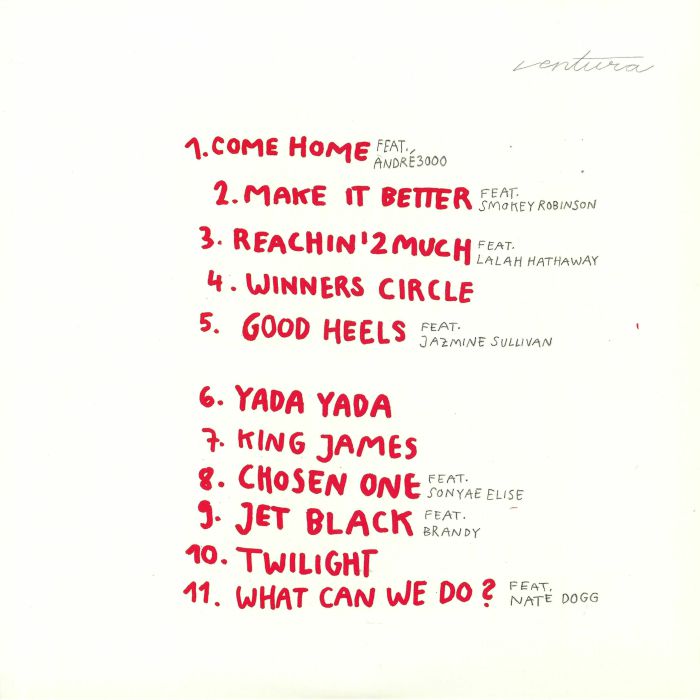 ventura
1. COME HOME FEAT. ANDRÉ3000
2. MAKE IT BETTER FEAT. SMOKEY ROBINSON
3. REACHIN'2MUCH FEAT. LALAH HATHAWAY
4. WINNERS CIRCLE
5. GOOD HEELS FEAT. JAZMINE SULLIVAN
6. YADA YADA
7. KING JAMES
8. CHOSEN ONE FEAT. SONYAE ELISE
9. JET BLACK FEAT. BRANDY
10. TWILIGHT
11. WHAT CAN WE DO? FEAT. NATE DOGG